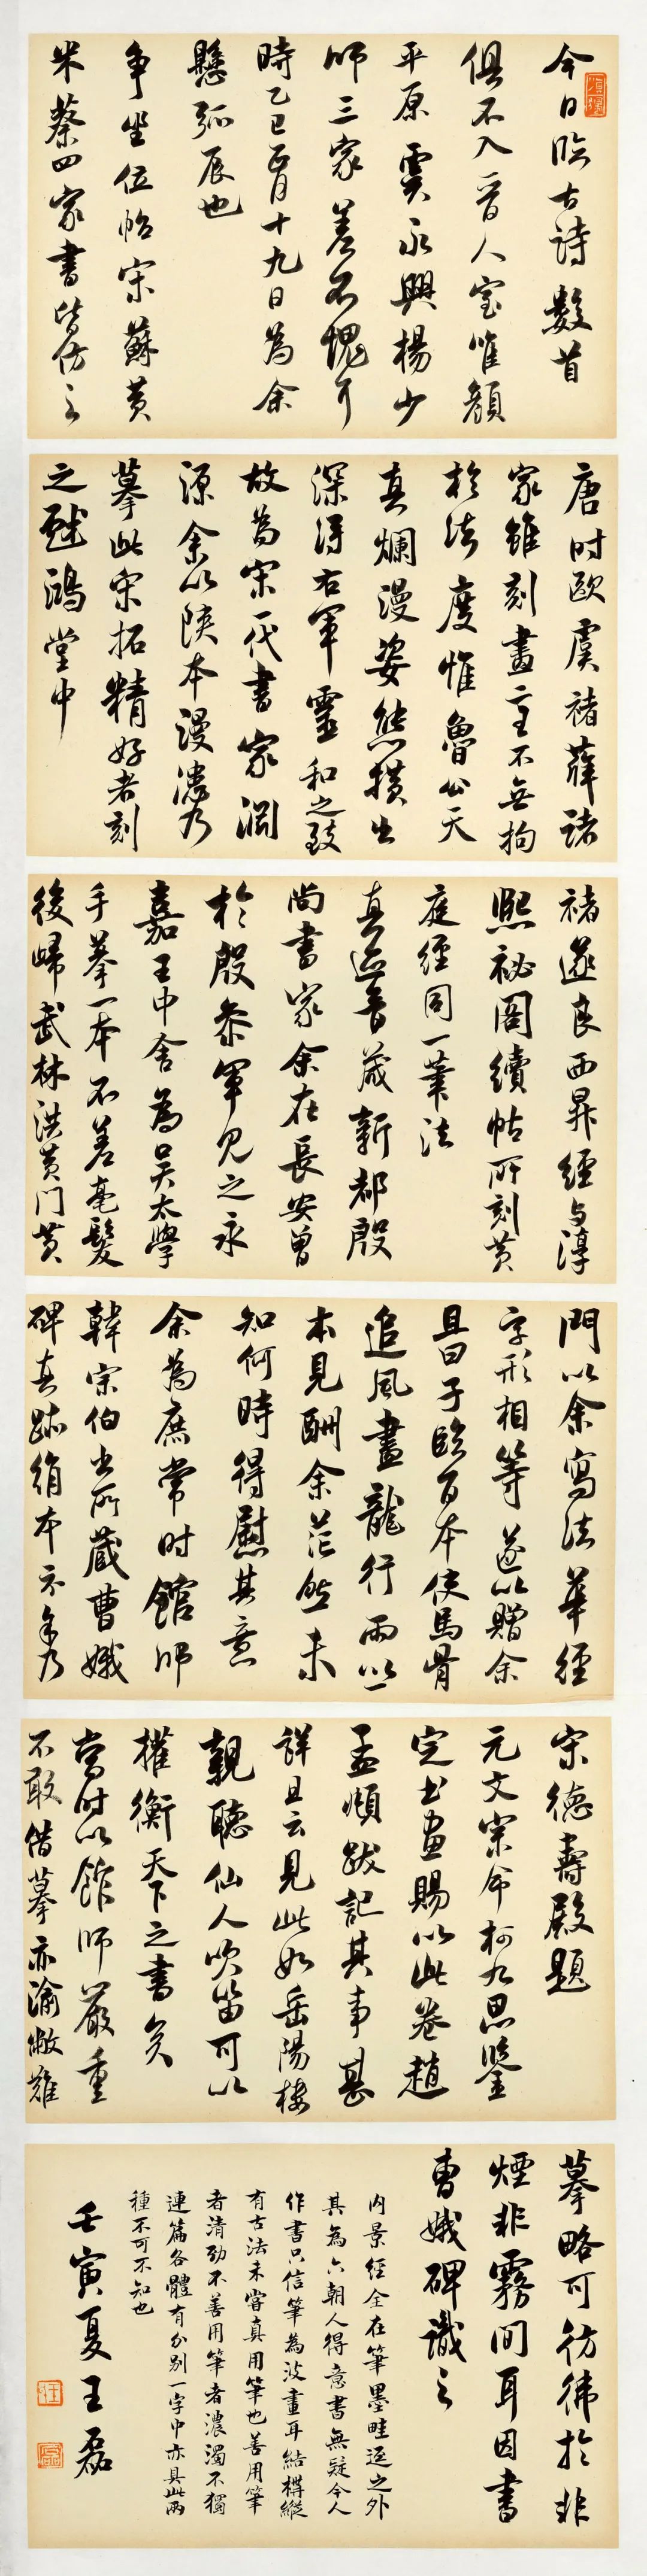 今日临古詩數首
俱不入晉人室唯顏
平原虞永興楊少
師三家差不愧耳
時乙巳正月十九日為余
懸弧辰也
争坐位帖宋蘇黄
米蔡四家書皆仿之
唐时歐虞褚薛諸
家雖刻畫二王不無拘
於法度惟魯公天
真爛漫姿態横出
深得右軍靈和之致
故為宋一代書家淵
源余以陝本漫漶乃
摹此宋拓精好者刻
之戲鴻堂中
褚遂良西昇經与淳
熙祕閣續帖所刻黄
庭經同一筆法
真迹昔藏新都殷
尚書家余在長安曾
於殷參軍見之永
嘉王中舍為吴太學
手摹一本不差毫髮
後歸武林洪黄門黄
門以余寫法華經
字形相等遂以贈余
且曰子臨百本使馬骨
追風畫龍行雨以一
本見酬余茫然未
知何時得慰其意
余為庶常时館师
韓宗伯出所藏曹娥
碑真跡絹本示余乃
宋德壽殿題
元文宗命柯九思鑒
定書畫賜以此卷趙
孟頫跋記其事甚
詳且云見此如岳陽樓
親聽仙人吹笛可以
權衡天下之書矣
當时以館师嚴重
不敢借摹亦渝敝難
摹略可彷彿於非
煙非霧间耳因書
曹娥碑識之
内景經全在筆墨畦逕之外
其為六朝人得意書無疑今人
作書只信筆為波畫耳結構縱
有古法未嘗真用筆也善用筆
者清劲不善用筆者濃濁不獨
連篇各體有分别一字中亦具此兩
種不可不知也
壬寅夏王磊